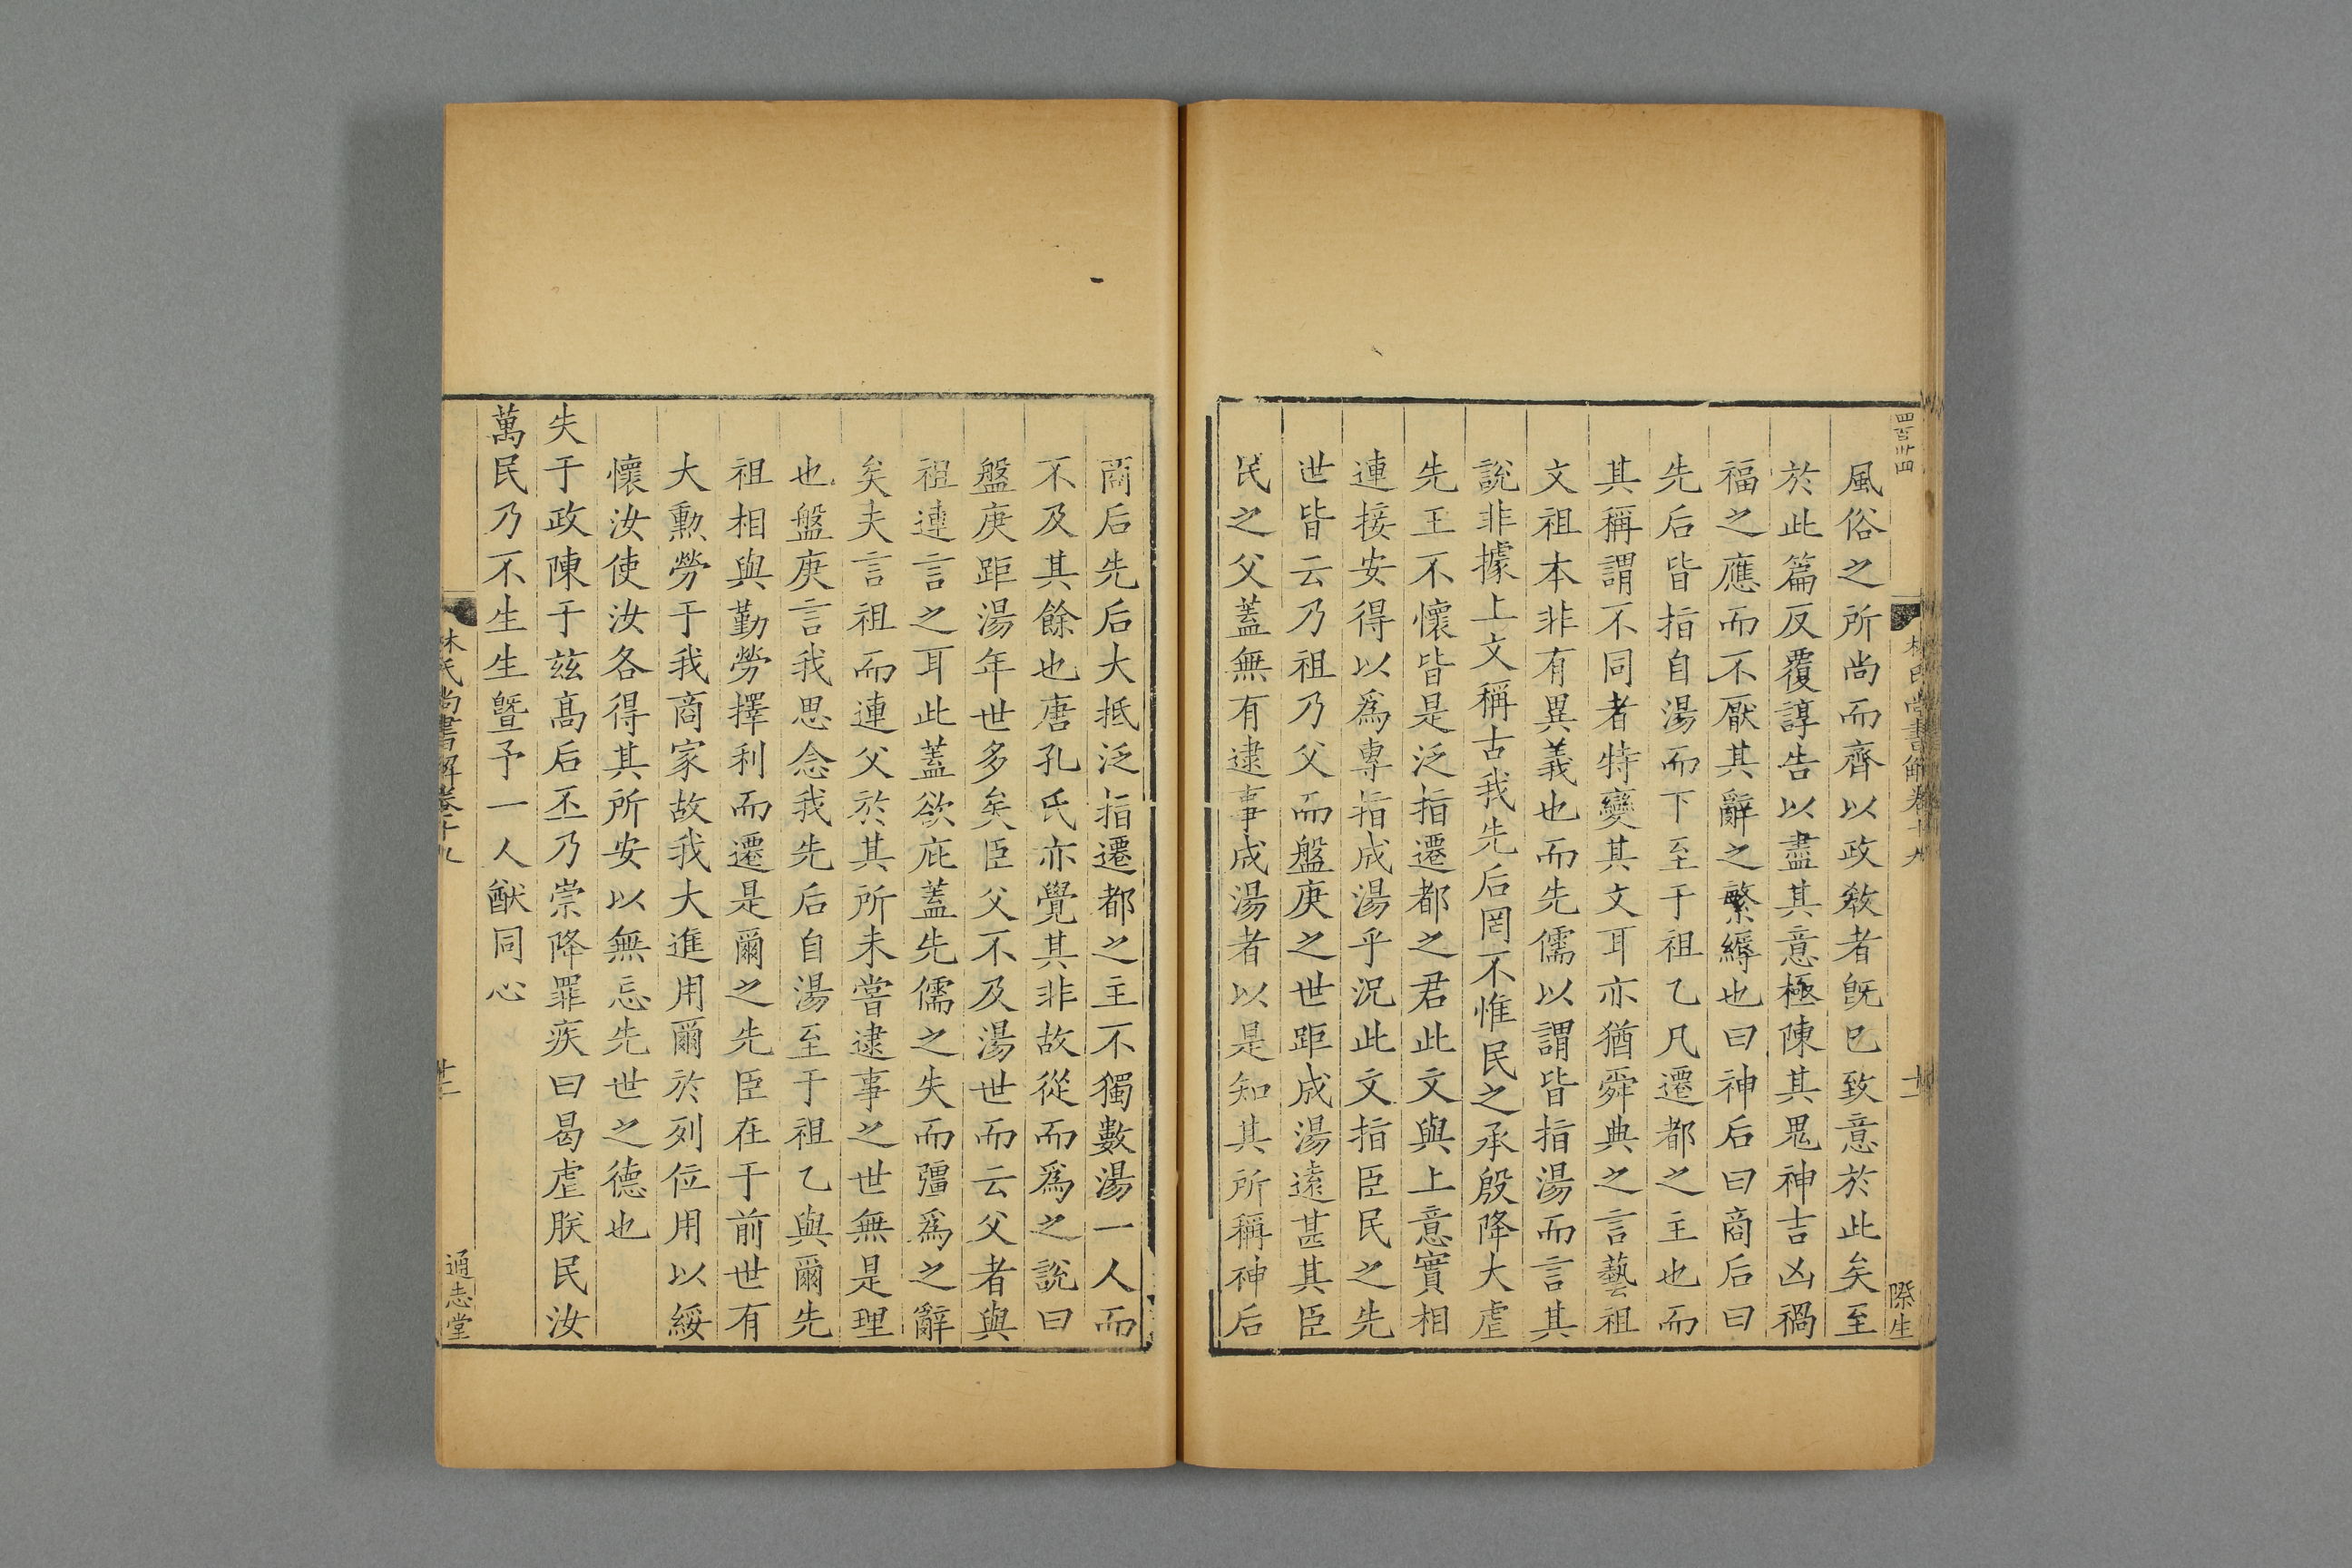 風俗之所尚而齊以政敎者旣已致意於此矣至
於此篇反覆諄告以盡其意極陳其鬼神吉凶禍
福之應而不厭其辭之繁縟也曰神后曰商后曰
先后皆指自湯而下至于祖乙凡遷都之主也而
其稱謂不同者特變其文耳亦猶舜典之言藝祖
文祖本非有異義也而先儒以謂皆指湯而言其
說非據上文稱古我先后罔不惟民之承殷降大虐
先王不懷皆是泛指遷都之君此文與上意實相
連接安得以爲專指成湯乎況此文指臣民之先
世皆云乃祖乃父而盤庚之世距成湯遠甚其臣
民之父蓋無有逮事成湯者以是知其所稱神后
商后先后大抵泛指遷都之主不獨數湯一人而
不及其餘也唐孔氏亦覺其非故從而爲之說曰
盤庚距湯年世多矣臣父不及湯世而云父者與
祖連言之耳此蓋欲庇蓋先儒之失而彊爲之辭
矣夫言祖而連父於其所未嘗逮事之世無是理
也盤庚言我思念我先后自湯至于祖乙與爾先
祖相與勤勞擇利而遷是爾之先臣在于前世有
大勲勞于我商家故我大進用爾於列位用以綏
懷汝使汝各得其所安以無忘先世之德也
失于政陳于茲髙后丕乃崇降罪疾曰曷虐朕民汝
萬民乃不生生曁予一人猷同心
林氏尚書解卷十九
通志堂